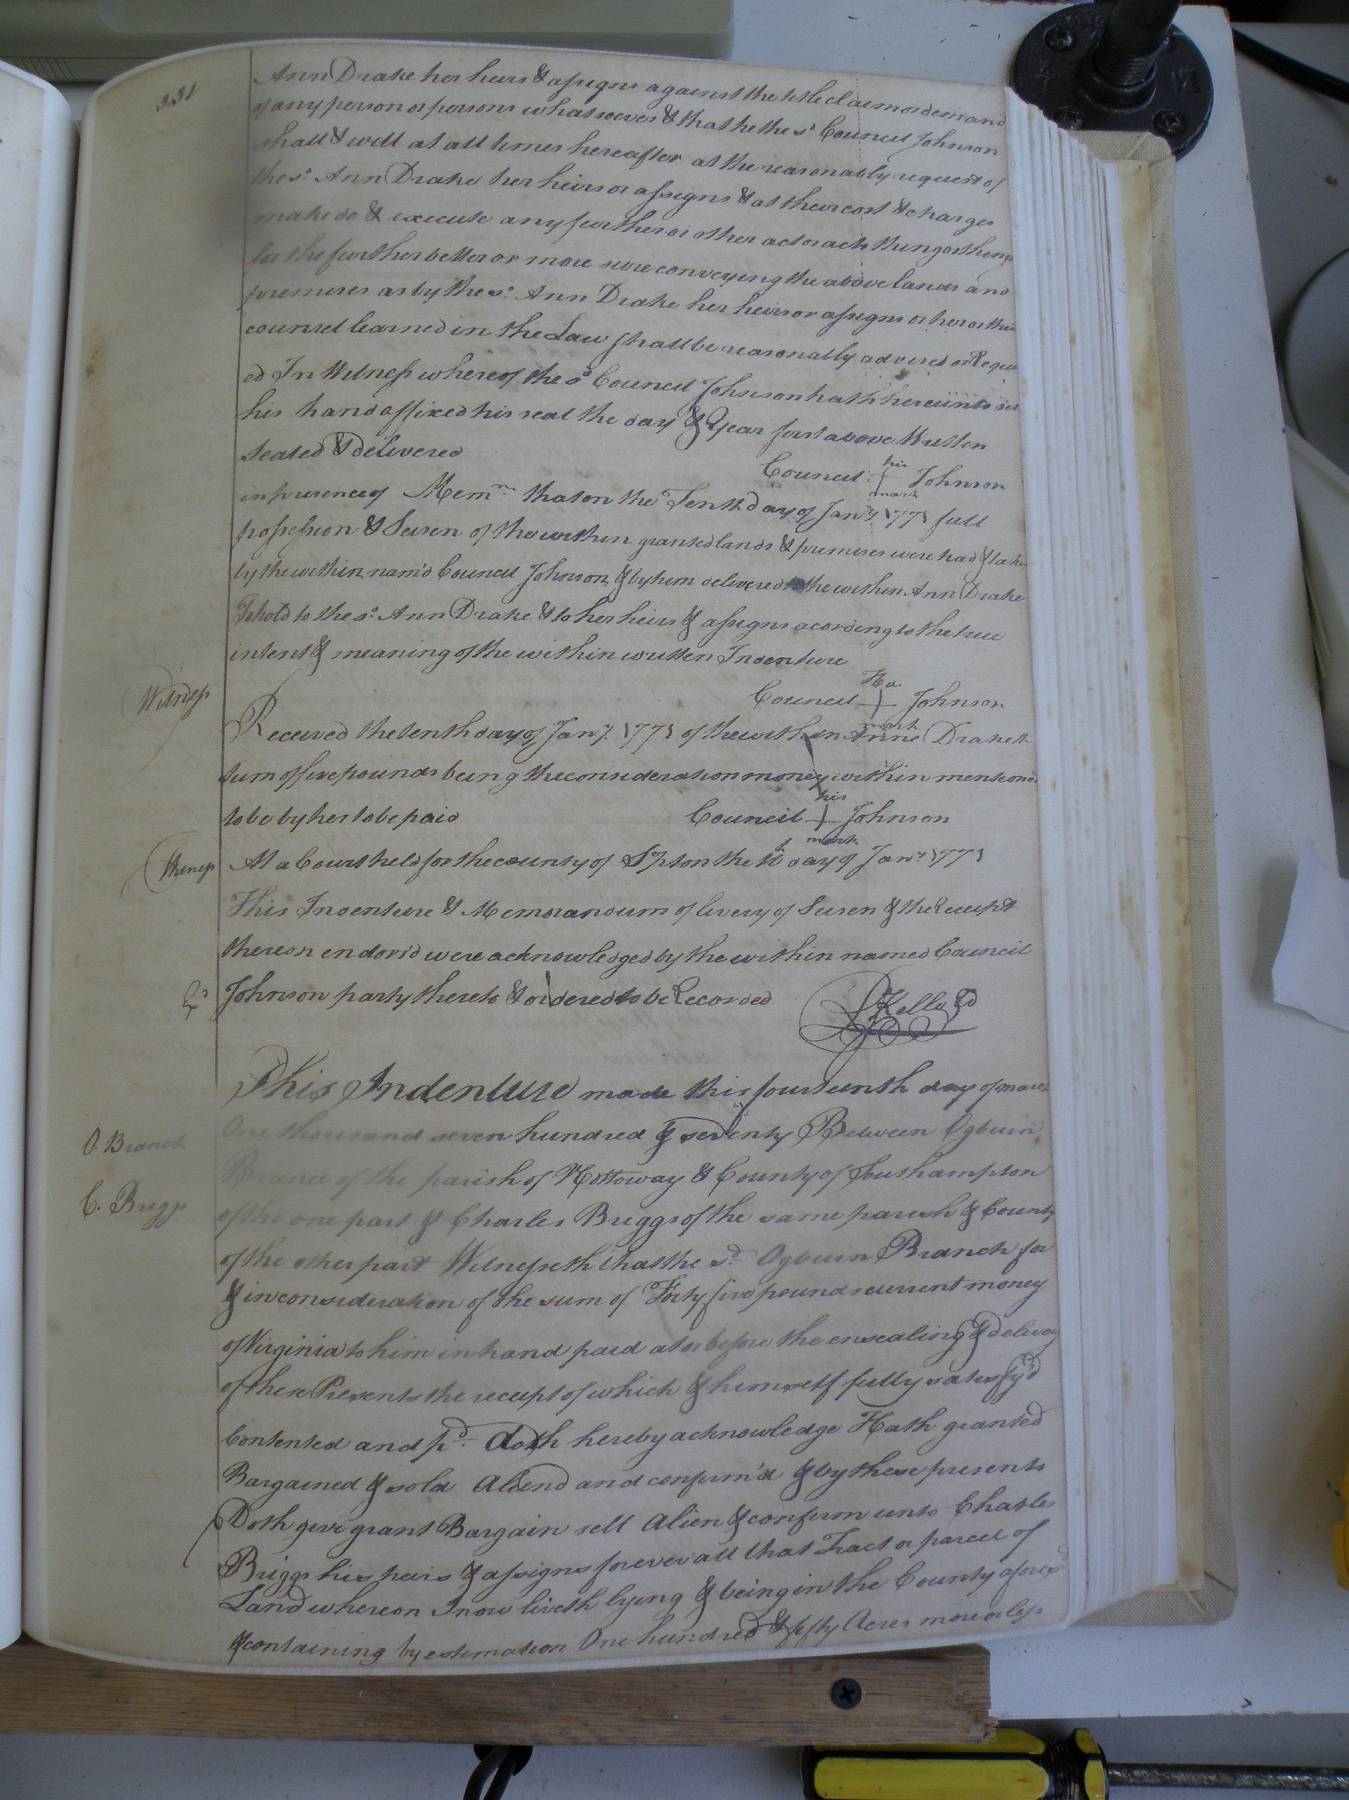 331
Ann Drake her heirs & assigns against the title claim or demand
of any person or persons whatsoever & that he the sd Council Johnson
shall & will at all times hereafter at the reasonably request of
the sd Ann Drake her heirs or assigns & at their cost & charges
make do & execute any further or other act or acts thing or things
for the further better or more sure conveying the above lands and
premises as by the sd Ann Drake her heirs or assigns or her or their
counsel learned in the Law shall be reasonably advised or Requir
ed In Witness whereof the sd Council Johnson hath hereunto set
his hand affixed his seal the day & Year first above Written
Sealed & delivered
Council his mark Johnson
in presence of Memm that on the Tenth day of Jany 1771 full
possession & Seisen of the within granted lands & premises were had & taken
by the within nam'd Council Johnson & by him delivered to the within Ann Drake
To hold to the sd Ann Drake & to her heirs & assigns acording to the true
intent & meaning of the within written Indenture
Witness
Council mark Johnson
Received the tenth day of Jany 1771 of the within Anne Drake the
sum of five pounds being the consideration money within mentiond
to be by her to be paid
Council his mark Johnson
Witness
At a Court held for the county of Spton the day of Jany 1771
This Indenture & Memorandum of livery of Seisen & the Receipt
thereon endors'd were acknowledged by the within named Council
Johnson party thereto & ordered to be Recorded
Exd
This Indenture made this fourteenth day of March
One thousand seven hundred & seventy Between Ogburn
O. Branch
Brance of the parish of Nottoway & County of Southampton
C. Briggs
of the one part & Charles Briggs of the same parish & County
of the other part Witnesseth that the sd Ogburn Branch for
& in consideration of the sum of Forty five pounds current money
of Virginia to him in hand paid at or before the ensealing & delivery
of these Presents the receipt of which & himself fully satisfy'd
Contented and pd doth hereby acknowledge Hath granted
Bargained & sold Aliend and confirm'd & by these presents
Doth give grant Bargain sell Alien & confirm unto Charles
Briggs his heirs & assigns forever all that Tract or parcel of
Land whereon I now liveth lying & being in the County aforesd
& containing by estimation One hundred & fifty Acres more or less